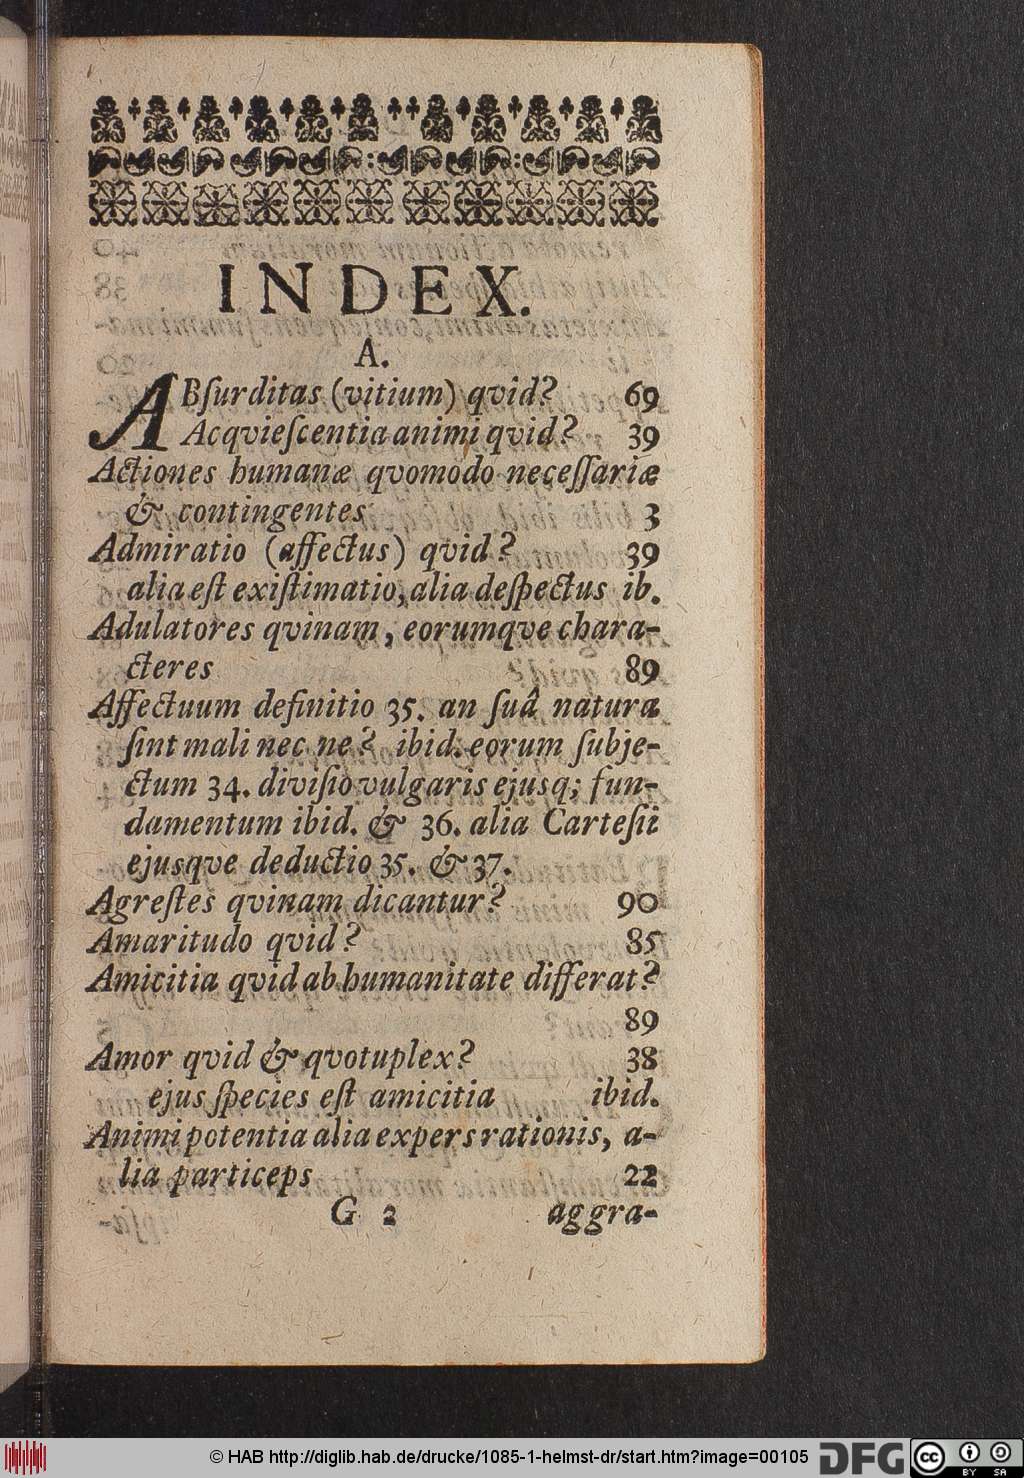 INDEX.
A.
ABſurditas (vitium) qvid? 69
Acqvieſcentia animi qvid? 39
Actiones humanæ qvomodo neceſſariæ
& contingentes 3
Admiratio (affectus) qvid? 39
alia eſt exiſtimatio, alia deſpectus ib.
Adulatores qvinam, eorumqve chara-
cteres 89
Affectuum definitio 35. an ſuâ natura
ſint mali nec ne? ibid. eorum ſubje-
ctum 34. diviſio vulgaris ejusq; fun-
damentum ibid. & 36. alia Carteſii
ejusqve deductio 35. & 37.
Agreſtes qvinam dicantur? 90
Amaritudo qvid? 85
Amicitia qvid ab humanitate differat?
89
Amor qvid & qvotuplex? 38
ejus ſpecies eſt amicitia ibid.
Animi potentia alia expers rationis, a-
lia particeps 22
G 2 aggra-
© HAB http://diglib.hab.de/drucke/1085-1-helmst-dr/start.htm?image=00105
DFG
cc BY SA